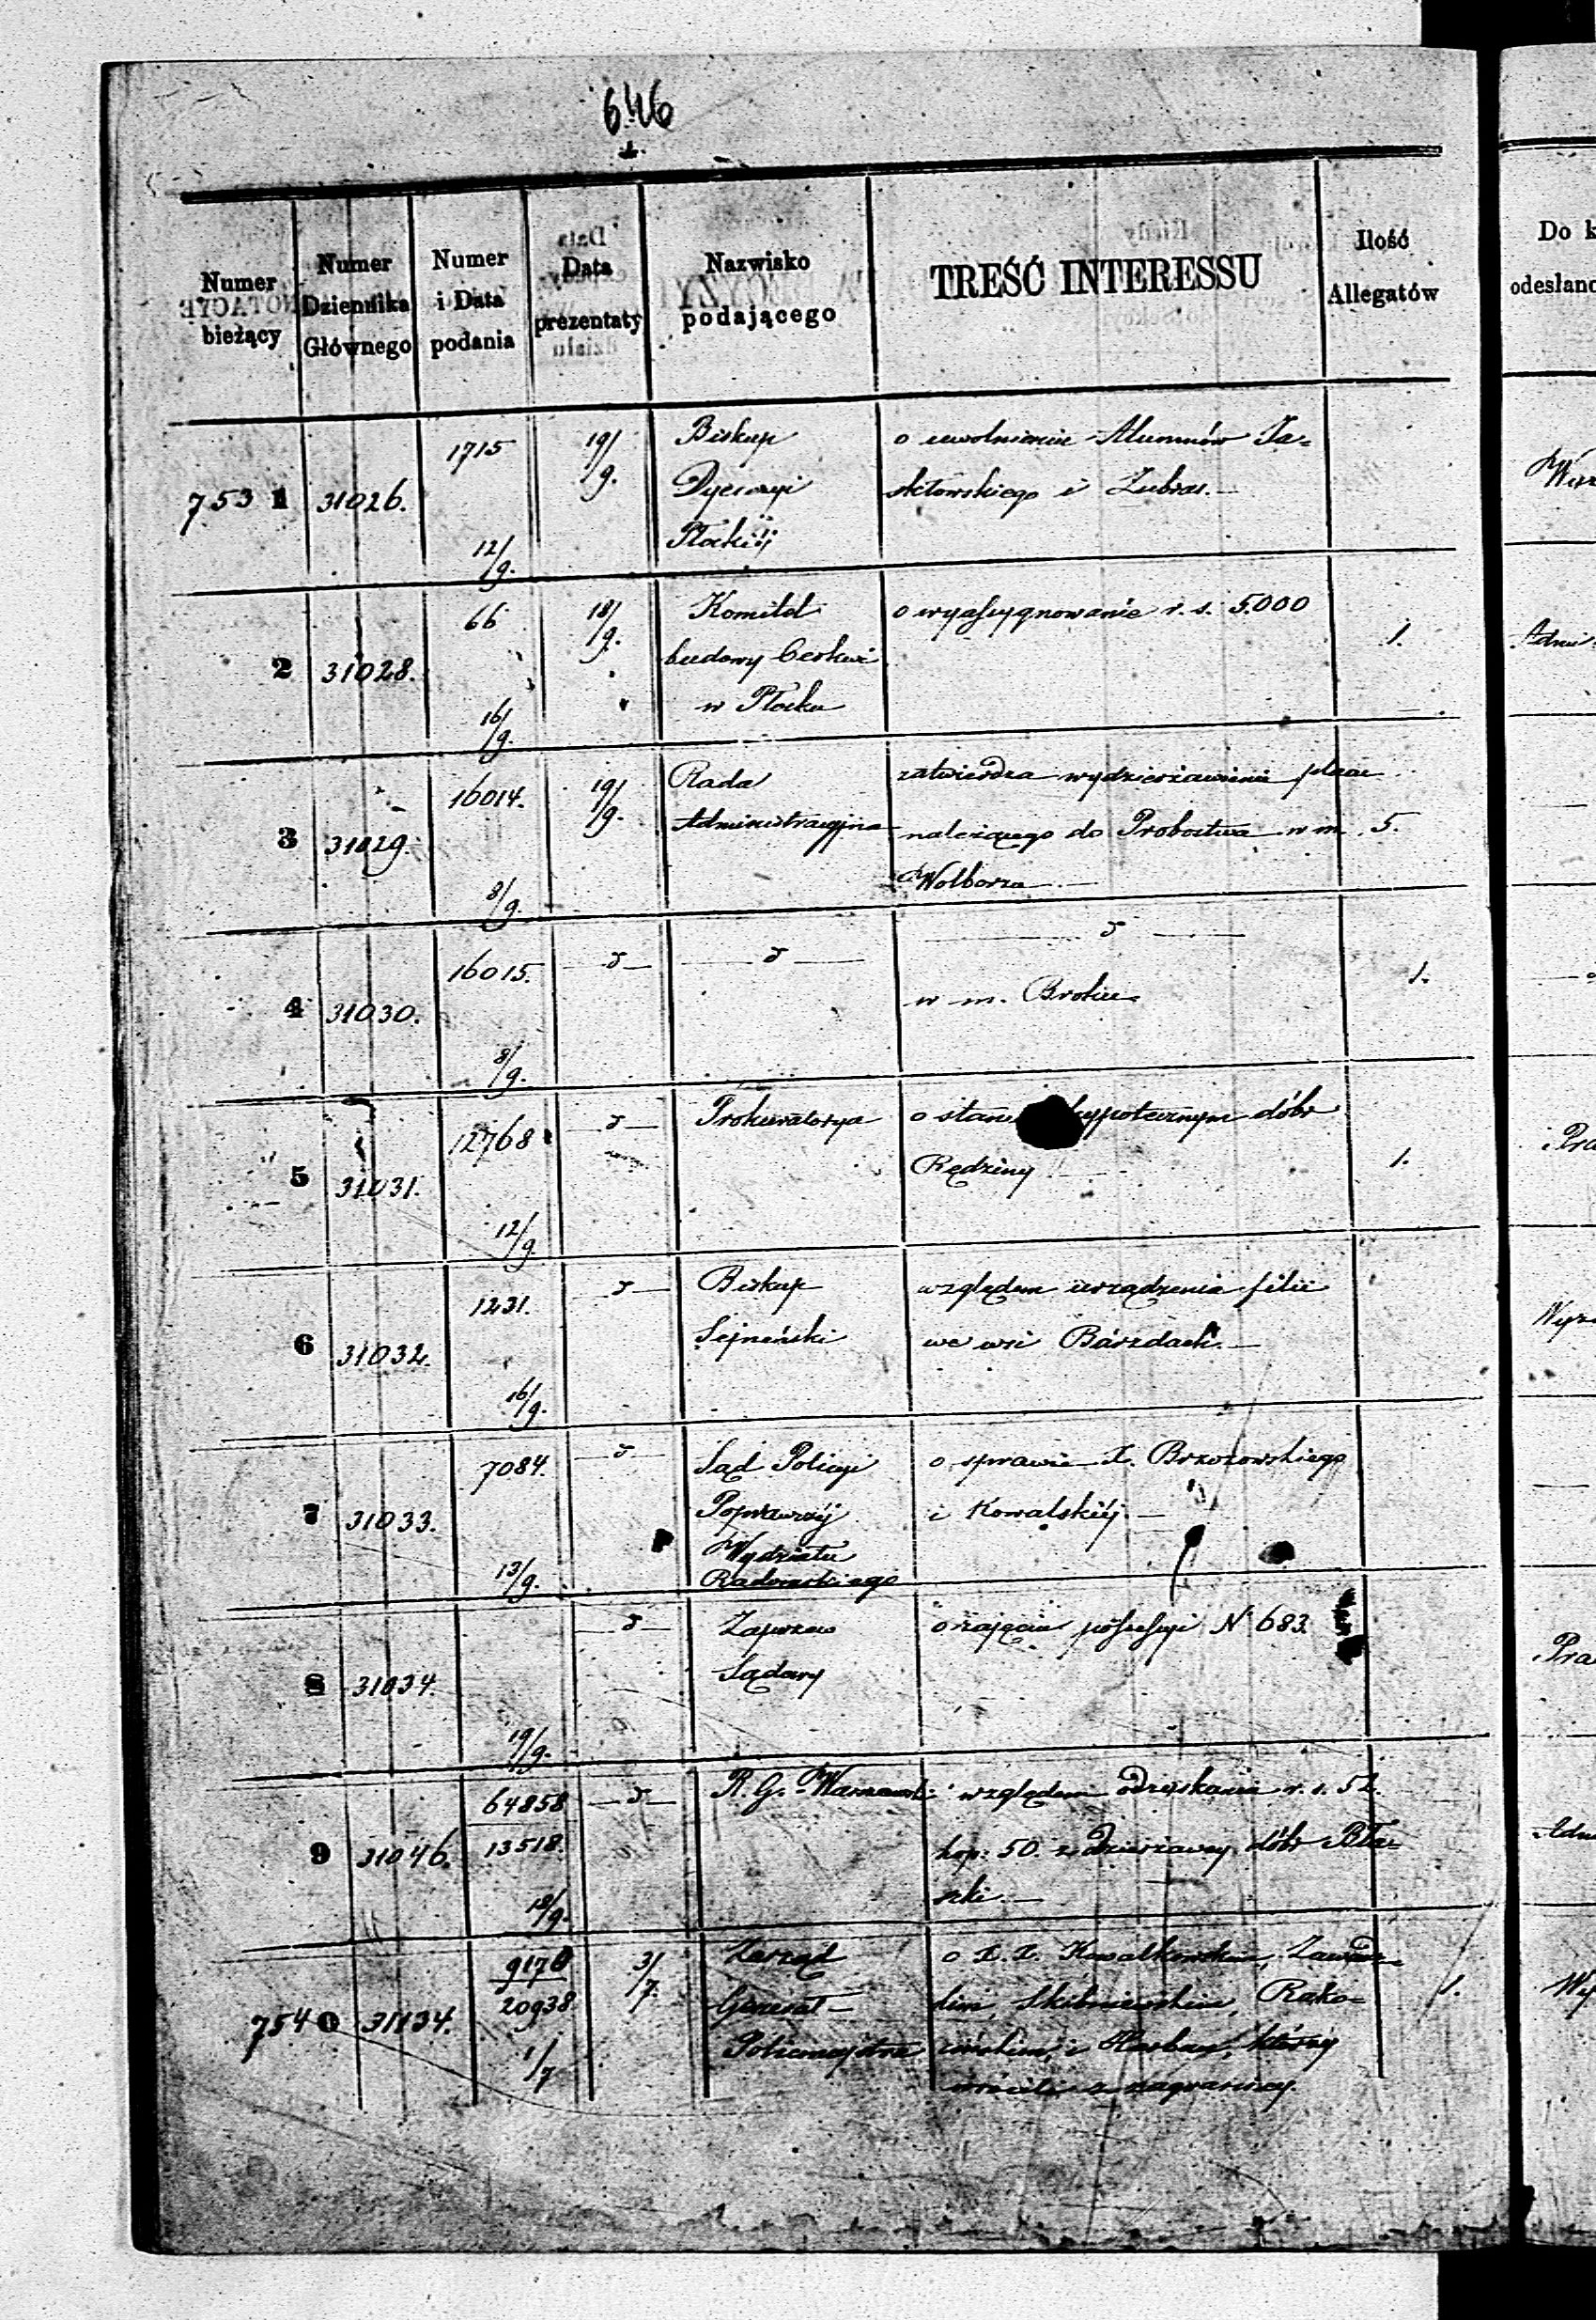 646
Numer bieżący
Numer Dziennika Głównego
Numer i Data podania
Data prezentaty
Nazwisko podającego
TREŚĆ INTERESSU
Ilość Allegatów
Do k
odesłano
7531 31026. 1715 12/9. 19/9.
Biskup
Dyecezyi
Płockiéj
o uwolnienie Alumnów Ja=
skłowskiego i Zubra.—
2 31028. 66 16/9. 18/9.
Komitet
budowy Cerkwi
w Płocku
o wyassygnowanie r. s. 5.000
1.
3 31029. 16014. 8/9. 19/9.
Rada
Administracyjna
zatwierdza wydzierżawienie placu
należącego do Probostwa w m.
Wolborzu.—
5.
4 31030. 16015. 8/9. —d— —d—
—d—
w m. Broku
1.
5 31031. 12768 12/9. —d—
Prokuratorya
o stanie hypotecznym dóbr
Rędziny
1.
6 31032. 1231. 16/9. —d—
Biskup
Sejneński
względem urządzenia filii
we wsi Barzdach.—
7 31033. 7084. 13/9. —d—
Sąd Policyi
Poprawczéj
Wydziału
Radomskiego
o sprawie X. Brzozowskiego
i Kowalskiéj.—
8 31034. 19/9. —d—
Zapozew
Sądowy
o zajęcie possessyi No 683.
9 31046. 64858 13518. 18/9. —d—
R. G. Warszawski
względem odzyskania r. s. 52
kop: 50. z dzierżawy dóbr Bła=
szki.—
7540 31134. 9176 20938 1/7 3/7.
Zarząd
Generał—
Policmajstra
o X. X. Kowalkowskim,
Skibniewskim, Rako=
i którzy
wrócili z zagranicy.
1.